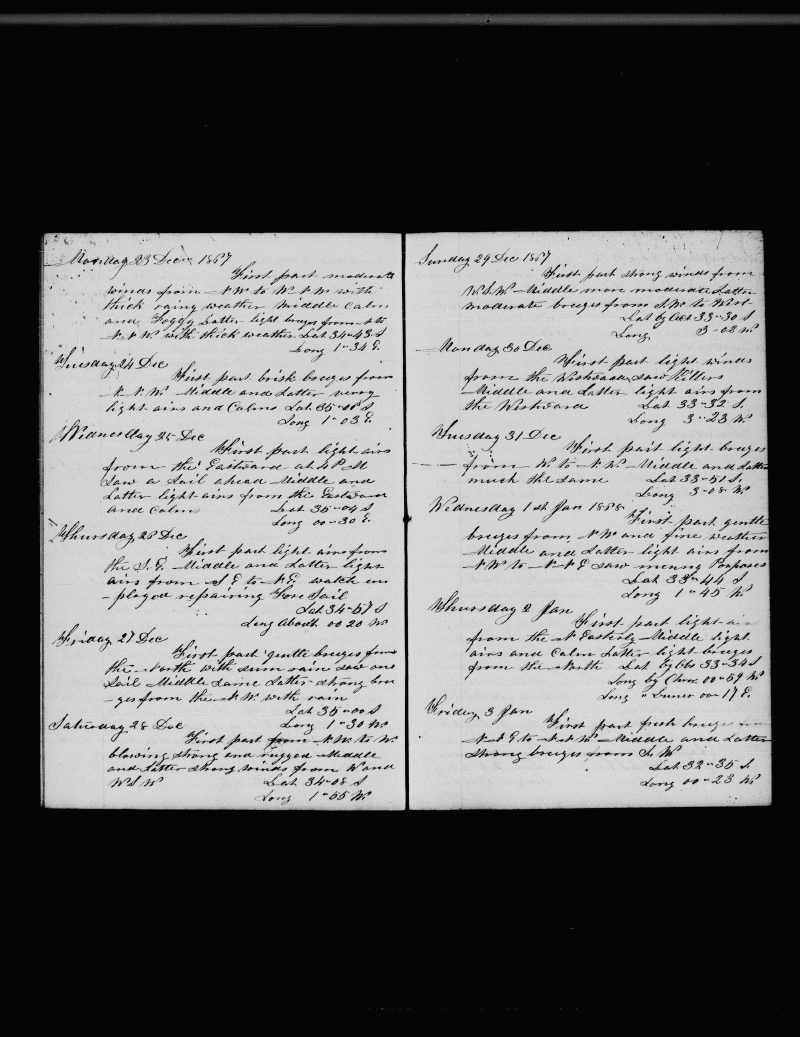 Monday 23 Dec 1867
First part moderate
winds from N.W. to W.N.W. with
thick rainy weather Middle Calm
and Foggy Latter light breezes from N to
N.N.W. with thick weather Lat 34-43 S
Long 1-34 E.
Tuesday 24 Dec
First part brisk breezes from
N.N.W. Middle and Latter very
light airs and Calms Lat 35-01 S
Long 1-03 E.
Wednesday 25 Dec
First part light airs
from the Eastward at 4 P.M
Saw a Sail ahead Middle and
Latter light airs from the Eastward
and Calm Lat 35-04 S
Long 00-30 E.
Thursday 26 Dec
First part light airs from
the S.E. Middle and Latter light
airs from S E to N.E. watch em
-ployed repairing Fore Sail
Lat 34-57 S
Long About 00 20 W
Friday 27 Dec
First part gentle breezes from
the North with sum rain saw one
Sail Middle Same Latter strong bree
-ges from the N.W. with rain
Lat 35-00 S
Long 1-30 W
Saturday 28 Dec
First part from N.W. to W.
blowing strong and rugged Middle
and Latter strong winds from W and
W S W Lat 34-08 S
Long 1-55 W
Sunday 29 Dec 1867
First part strong winds from
W.S.W. Middle more moderate Latter
moderate breezes from S.W to West
Lat by Obs 33-30 S
Long 3-02 W
Monday 30 Dec
First part light winds
from the Westward saw Killers
Middle and Latter light airs from
the Westward Lat 33-32 S.
Long 3-23 W.
Tuesday 31 Dec
First part light breezes
from W. to N.W. Middle and Latter
much the same Lat 33-51 S.
Long 3-08 W
Wednesday 1st Jan 1868
First part gentle
breezes from N.W and fine weather
Middle and Latter light airs from
N.W to N.N E saw meny Porposes
Lat 33-44 S
Long 1-45 W
Thursday 2 Jan
First part light air
from the N Easterly Middle light
airs and Calm Latter light breezes
from the North Lat by Obs 33-34 S
Long by Chro 00-59 W
Long " Luner 00-17 E.
Friday 3 Jan
First part fresh breezes from
N.N E to N.N W Middle and Latter
strong breezes from S. W
Lat 32-35 S.
Long 00-23 W.